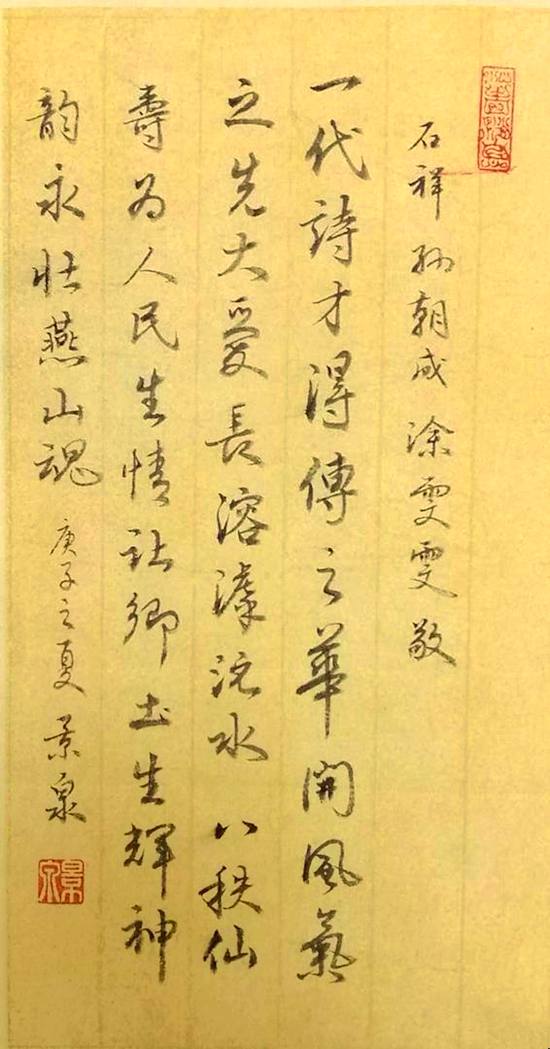 石祥孙朝成涂雯雯敬
一代詩才得傳之華開風氣
之先大愛長溶滹沱水八秩仙
壽为人民生情让鄉土生輝神
韵永壮燕山魂庚子之夏景泉
景泉